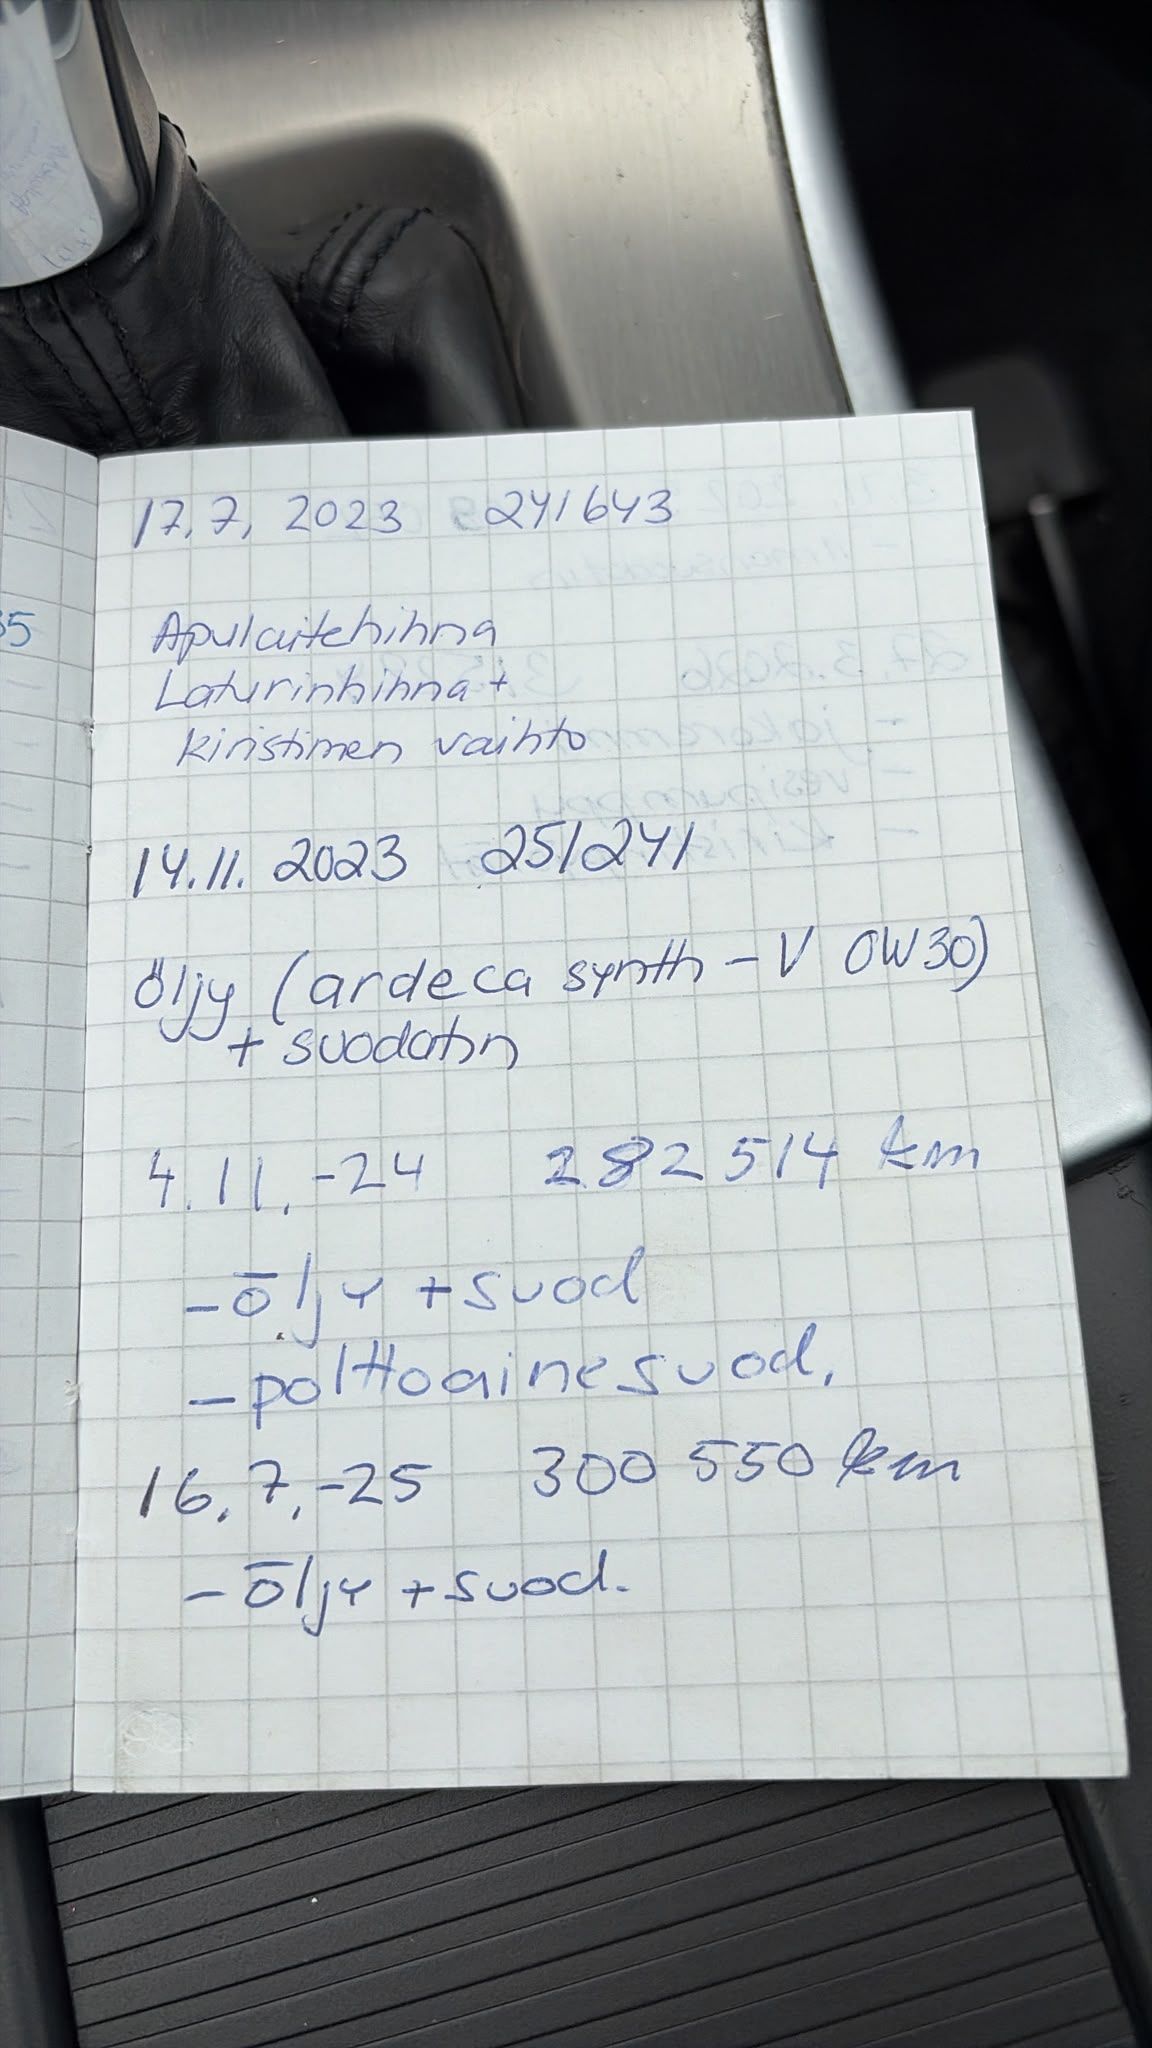 17.7, 2023 241643
Apulaitehihna
Laturinhihna +
kiristimen vaihto
14.11. 2023 251241
Öljy (ardeca synth - V 0W30)
+ suodatin
4.11.-24 282 514 km
- öljy + suod
- polttoainesuod.
16.7.-25 300 550 km
- öljy + suod.